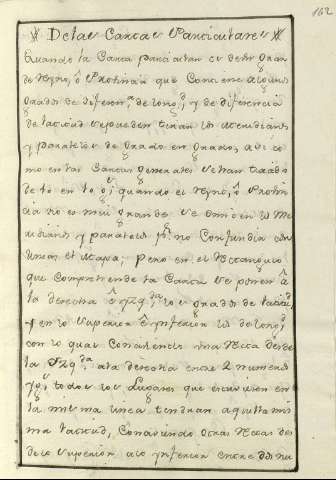 162
De las Cartas Particulares
Quando la Carta particular es de un gran
de Reyno, ò Provincia que contiene algunos
grados de diferen.a de long.d, y de diferencia
de latitud se pueden tirar los meridianos
y paralelos de grado en grado, asi co
mo en las Cartas generales se han tirado
de 10 en 10, y quando el Reyno, ò Provin
cia no es mui grande se omiten los Me
ridianos y paralelos p.r no confundir con
lineas el mapa; pero en el Rectangulo
que comprehende la Carta se ponen à
la derecha è yzq.da los grados de latitud
y en lo superior è ynferior los de long.d
con lo qual una Recta desde
la yzq.da a la derecha entre 2 numeros
yg.s todos los Lugares que estuviesen en
la misma linea tendran aquella mis
ma latitud, otras Rectas des
de lo superior a lo ynferior entre dos nu